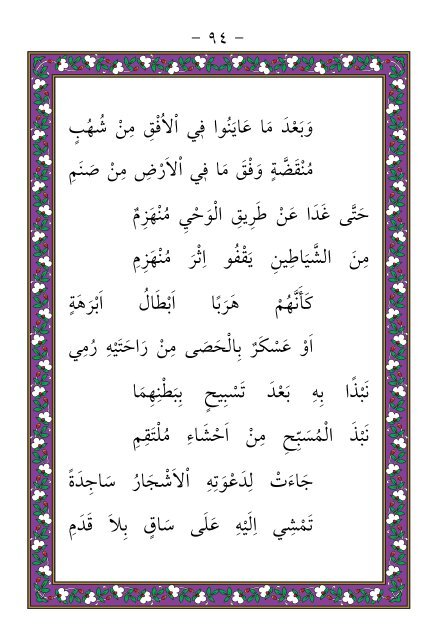 – ٩٤ –
وَبَعْدَ مَا عَايَنُوا فِي اْلاُفْقِ مِنْ شُهُبٍ
مُنْقَضَّةٍ وَفْقَ مَا فِي اْلاَرْضِ مِنْ صَنَمِ
حَتَّى غَدَا عَنْ طَرِيقِ الْوَحْيِ مُنْهَزِمٌ
مِنَ الشَّيَاطِينِ يَقْفُو اِثْرَ مُنْهَزِمِ
كَأَنَّهُمْ هَرَبًا اَبْطَالُ اَبْرَهَةٍ
اَوْ عَسْكَرٌ بِالْحَصَى مِنْ رَاحَتَيْهِ رُمِي
نَبْذًا بِهِ بَعْدَ تَسْبِيحٍ بِبَطْنِهِمَا
نَبْذَ الْمُسَبِّحِ مِنْ اَحْشَاءِ مُلْتَقِمِ
جَاءَتْ لِدَعْوَتِهِ اْلاَشْجَارُ سَاجِدَةً
تَمْشِي اِلَيْهِ عَلَى سَاقٍ بِلاَ قَدَمِ